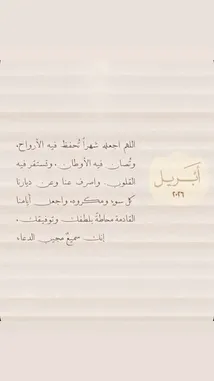 أبريل
٢٠٢٦
اللهم اجعله شهراً تُحفظ فيه الأرواح،
وتُصان فيه الأوطان، وتستقر فيه
القلوب واصرف عنا وعن ديارنا
كل سوء ومكروه، واجعل أيامنا
القادمة محاطةً بلطفك وتوفيقك،
إنك سميعٌ مجيب الدعاء